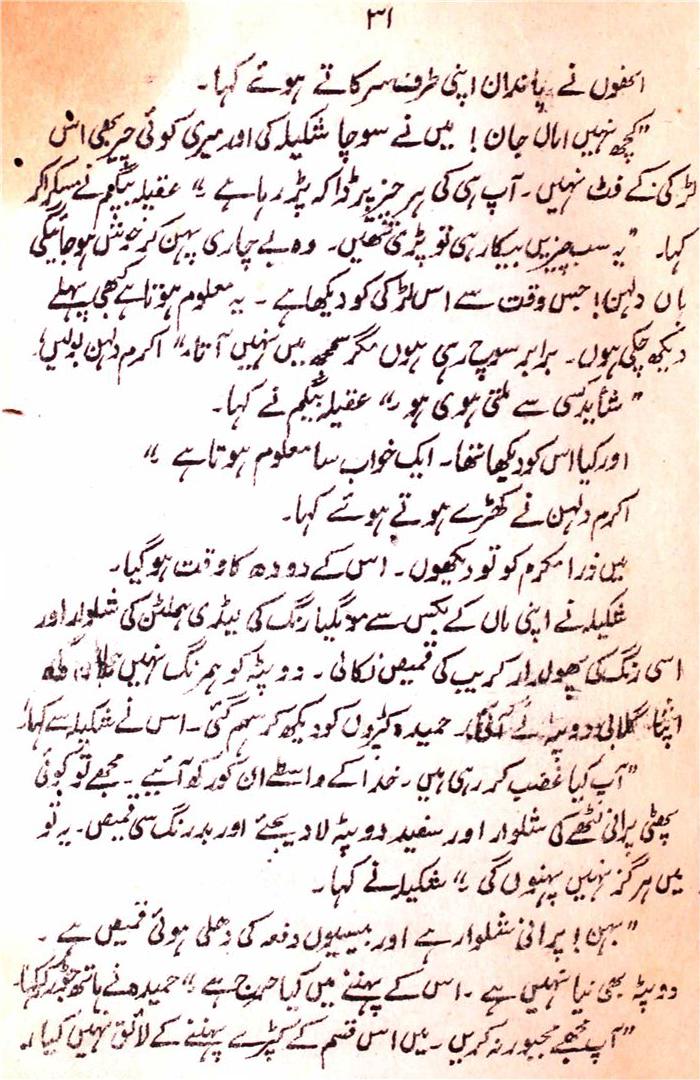 ۳۱
انھوں نے پاندان اپنی طرف سرکاتے ہوئے کہا۔
"کچھ نہیں اماں جان! میں نے سوچا شکیلہ کی اور میری کوئی چیز بھی اس
لڑکی کے فٹ نہیں۔ آپ ہی کی ہر چیز پر ڈاکہ پڑ رہا ہے" عقیلہ بیگم نے مسکرا کر
کہا۔ "یہ سب چیزیں بیکار ہی تو پڑی تھیں۔ وہ بے چاری پہن کر خوش ہو جائیگی
ہاں دلہن! جس وقت سے اس لڑکی کو دیکھا ہے۔ یہ معلوم ہوتا ہے کبھی پہلے
دیکھ چکی ہوں۔ برابر سوچ رہی ہوں مگر سمجھ میں نہیں آتا،" اکرم دلہن بولیں۔
"شاید کسی سے ملتی ہوی ہو" عقیلہ بیگم نے کہا۔
اور کیا اس کو دیکھا تھا۔ ایک خواب سا معلوم ہوتا ہے"
اکرم دلہن نے کھڑے ہوتے ہوئے کہا۔
میں ذرا مکرم کو تو دیکھوں۔ اس کے دودھ کا وقت ہو گیا۔
شکیلہ نے اپنی ماں کے بکس سے مونگیا رنگ کی لیڈی ہملٹن کی شلوار اور
اسی رنگ کی پھولدار کریب کی قمیص نکالی۔ دوپٹہ کو ہمرنگ نہیں
اپنا گلابی دوپٹہ لے آئی۔ حمیدہ کپڑوں کو دیکھ کر سہم گئی۔ اس نے شکیلہ سے کہا،
"آپ کیا غضب کر رہی ہیں۔ خدا کے واسطے ان کو رکھ آئیے۔ مجھے تو کوئی
پھٹی پرانی لٹھے کی شلوار اور سفید دوپٹہ لا دیجئے اور بدرنگ سی قمیص۔ یہ تو
میں ہرگز نہیں پہنوں گی" شکیلہ نے کہا۔
"بہن! پرانی شلوار ہے اور بیسیوں دفعہ کی دھلی ہوئی قمیص ہے۔
دوپٹہ بھی نیا نہیں ہے۔ اس کے پہننے میں کیا حرج ہے" حمیدہ نے ہاتھ جوڑ کر کہا۔
"آپ مجھے مجبور نہ کریں۔ میں اس قسم کے کپڑے پہننے کے لائق نہیں